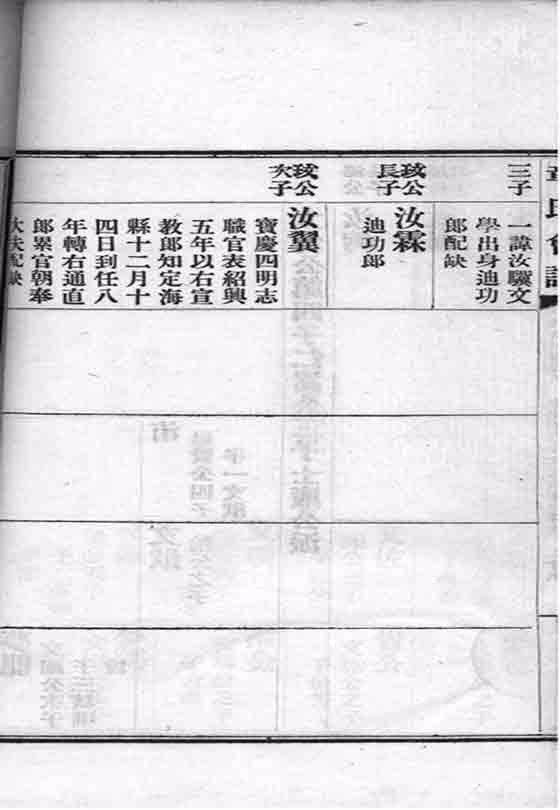 三子
一諱汝驥文
學出身迪功
郎配缺
公
長子
汝霖
迪功郎
公
次子
汝翼
寶慶四明志
職官表紹興
五年以右宣
教郎知定海
縣十二月十
四日到任八
年轉右通直
郎累官朝奉
大夫配缺